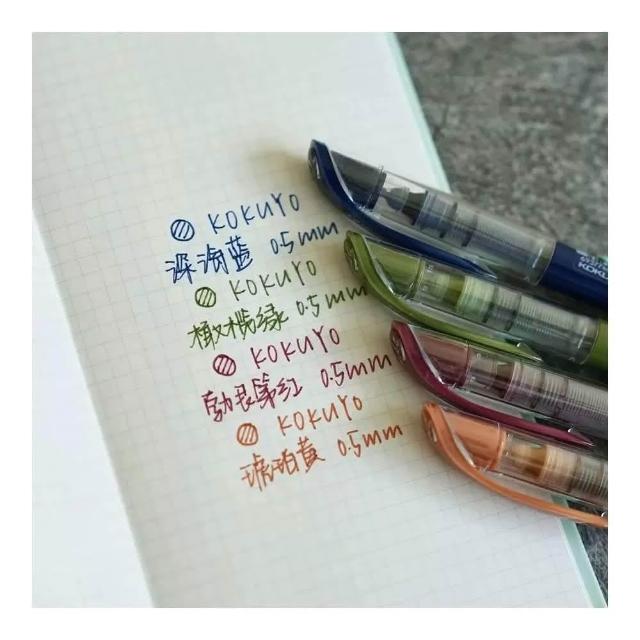 KOKUYO
深海蓝 0.5mm
KOKUYO
橄榄绿 0.5mm
KOKUYO
勃艮第红 0.5mm
KOKUYO
琥珀黄 0.5mm
KOKU